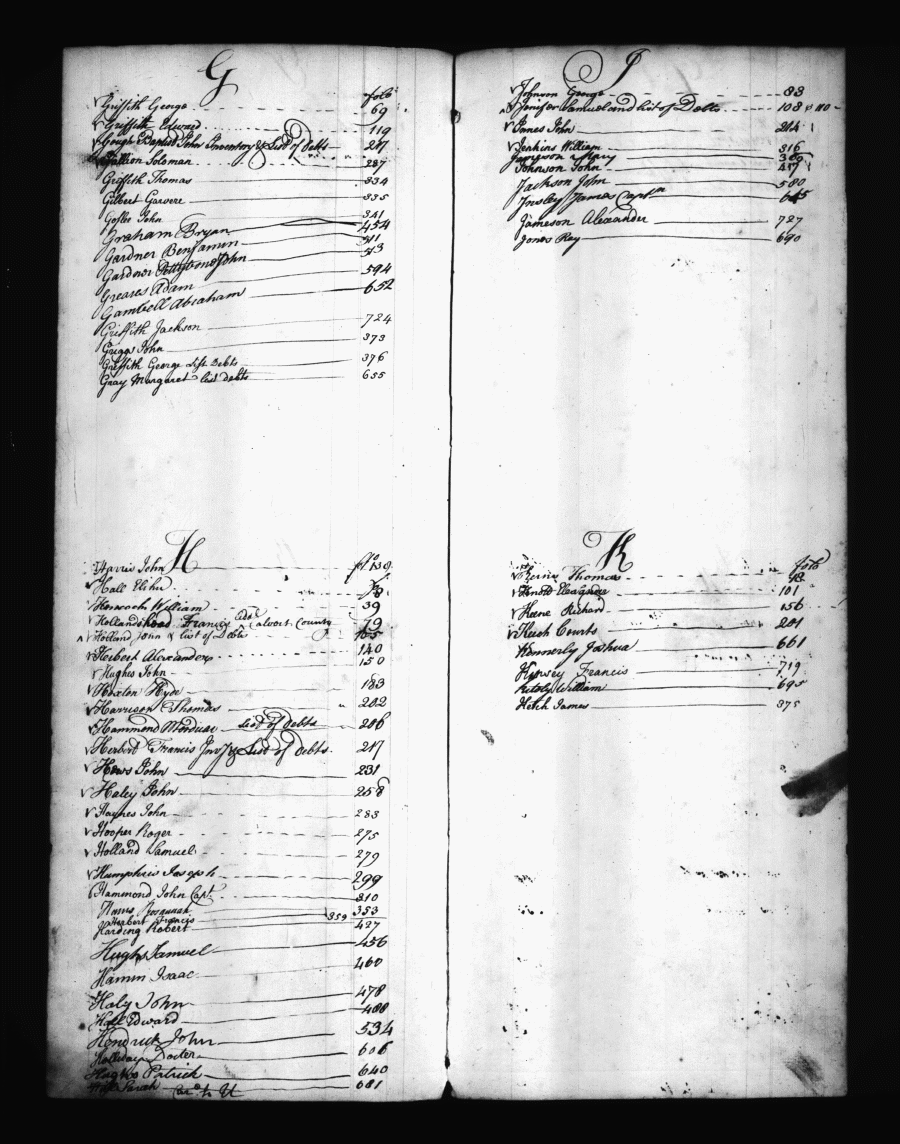 G
folo
Griffith George 69
Griffith Edward 119
Gough Baptist John Inventory & List of Debts 217
Gallion Soloman 287
Griffith Thomas 334
Gilbert Garvere 335
John 341
Graham Bryan 454
Gardner Benjamin 511
Gardner John 513
Greares Adam 594
Gambell Abraham 652
Griffith Jackson 724
Griggs John 373
Griffith George List Debts 376
Gray Margaret List debts 655
H
Harris John folo 139
Hall Elihu
William 39
Francis Calvert County 79
Holland John & List of Debts 105
Herbert Alexander 140
Hughes John 150
Hoxton Hyde 183
Harrison Thomas 202
Hammond Mordicai List of Debts 206
Herbert Francis Inv.y & List of Debts 217
Hews John 231
Haley John 258
Haynes John 283
Hooper Roger 275
Holland Samuel 279
Humphris Joseph 299
Hammond John Capt 310
Hams Rosannah 353
Herbert Francis 359
Harding Robert 427
Hughs Samuel 456
Hamm Isaac 460
Haly John 478
Hall Edward 488
Hendrick John 534
Holliday Docter 606
Hughs Patrick 640
Sarah 681
I
Johnson George 88
Jenifer Samuel and List of Debts 108 & 110
James John 214
Jenkins William 316
Jameson Mary
Johnson John 417
Jackson John 580
Insley James Captn 645
Jameson Alexander 727
Jones Ray 690
K
folo
Thomas
Eleaganor 101
Keene Richard 156
Keech Courts 201
Kennerly Joshua 661
Kersey Francis 719
William 695
Keech James 375